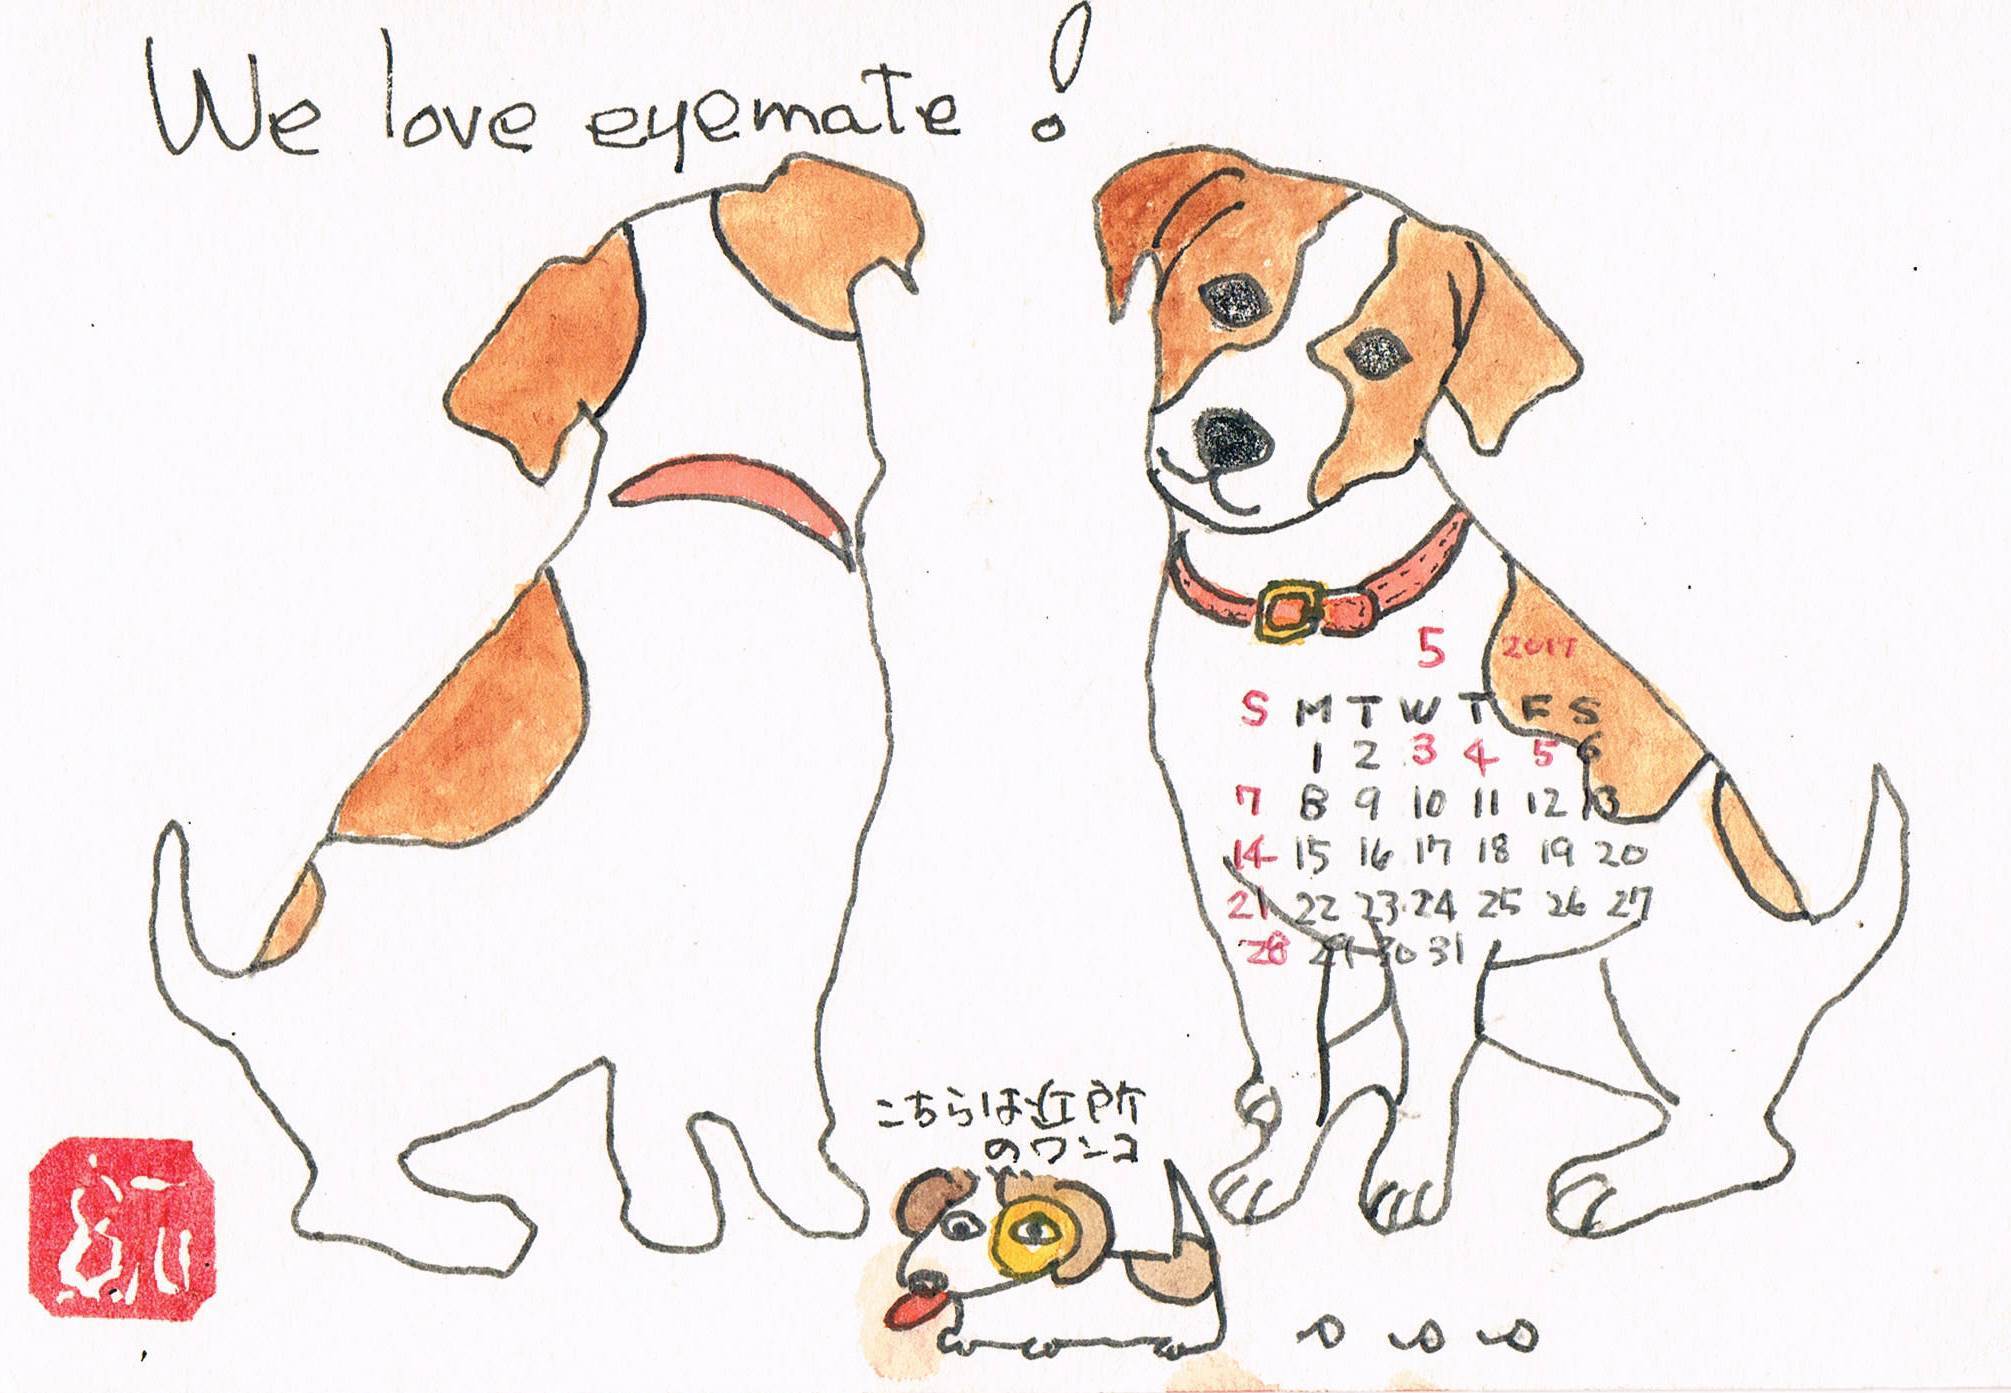 We love eyemate!
5 2017
S M T W T F S
1 2 3 4 5 6
7 8 9 10 11 12 13
14 15 16 17 18 19 20
21 22 23 24 25 26 27
28 29 30 31
こちらは近所
のワンコ